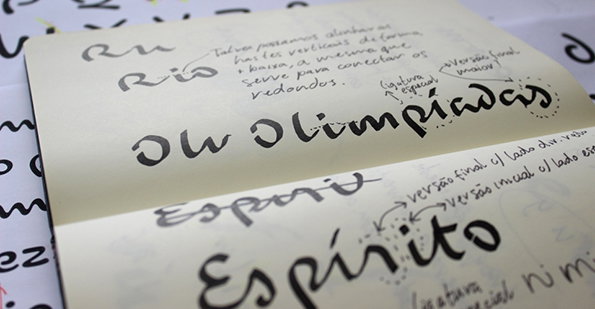 Ru
Rio
Talvez possamos alinhar as
hastes verticais de forma
+ baixa, a mesma que
serve para conectar os
redondos.
ligatura
especial
versão final
maior
Ol Olimpíadas
Espiri
versão final c/ lado
versão inicial c/ lado
Espírito
ligatura